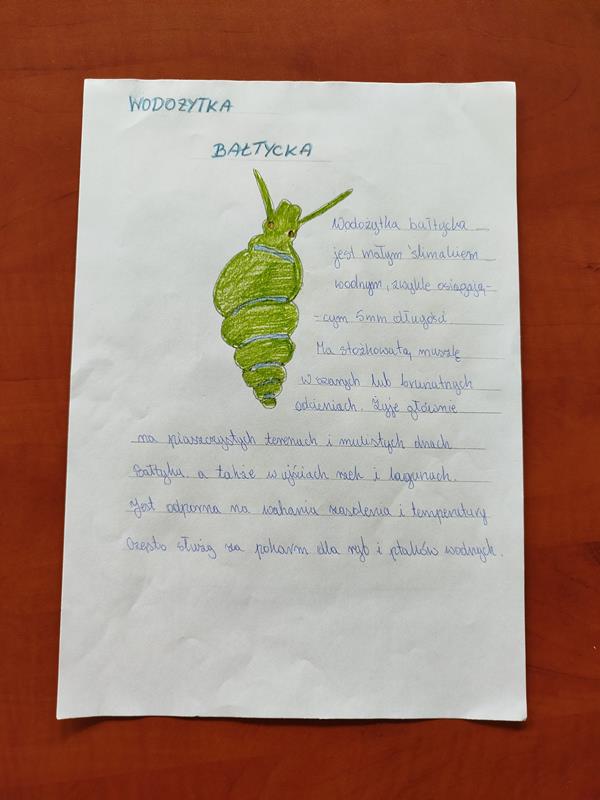 WODOŻYTKA
BAŁTYCKA
Wodożytka bałtycka
jest małym ślimakiem
wodnym, zwykle osiągają-
-cym 5mm długości.
Ma stożkowatą muszlę
w szarych lub brunatnych
odcieniach. Żyje głównie
na piaszczystych terenach i mulistych dnach
Bałtyku, a także w ujściach rzek i lagunach.
Jest odporna na wahania zasolenia i temperatury
Często służą za pokarm dla ryb i ptaków wodnych.